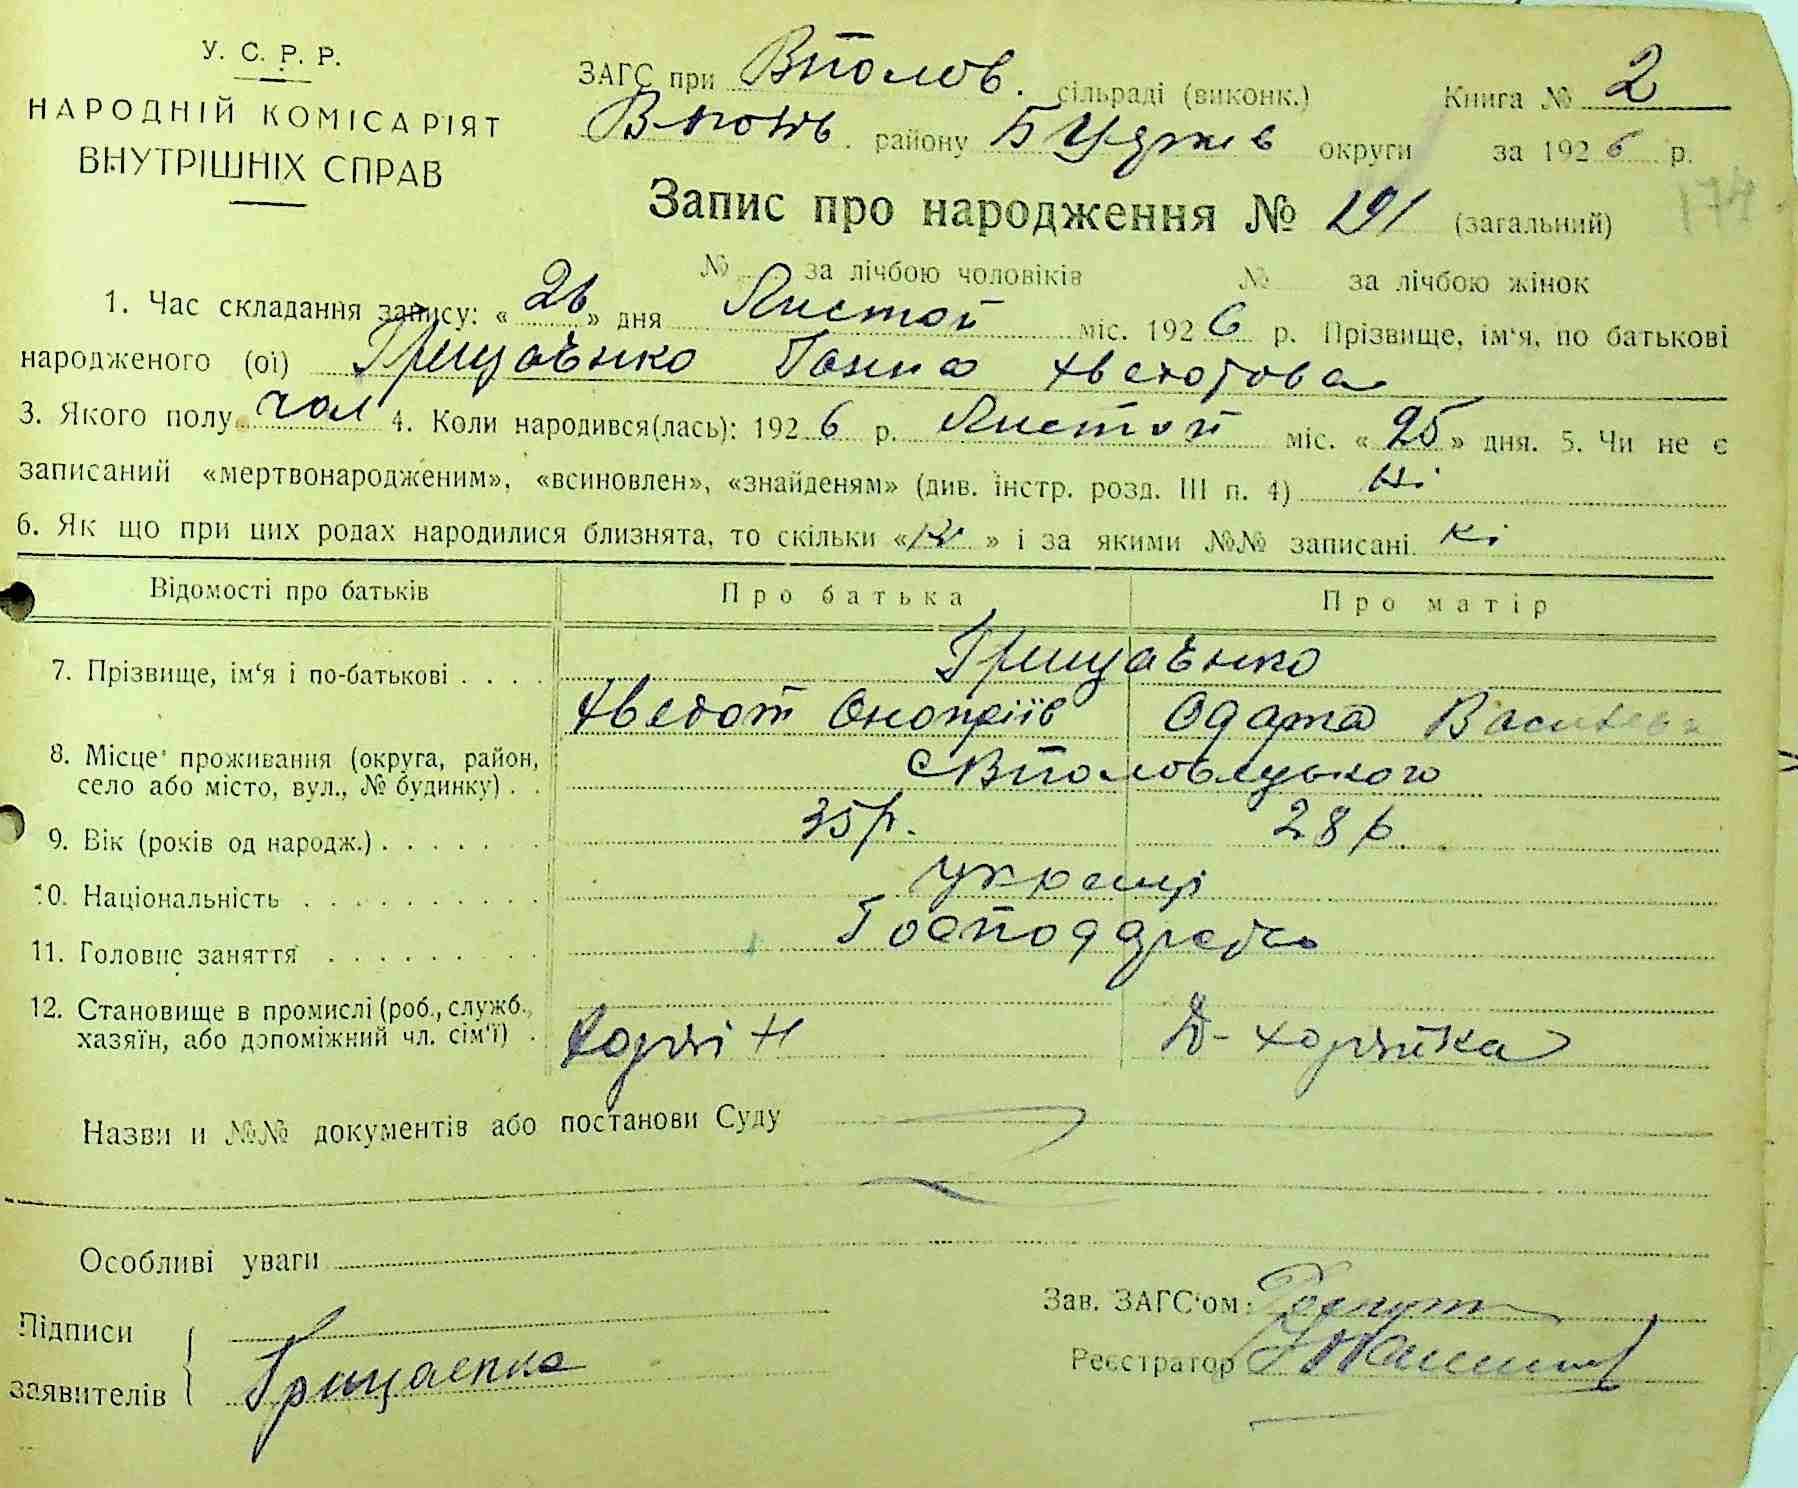 У. С. Р. Р.
НАРОДНІЙ КОМІСАРІЯТ
ВНУТРІШНІХ СПРАВ
ЗАГС при Вполов. сільраді (виконк.) Книга № 2
району округи за 1926 р.
Запис про народження № 191 (загальний)
174
№ за лічбою чоловіків № за лічбою жінок
1. Час складання запису: « 26 » дня Листоп міс. 1926 р. Прізвище, ім'я, по батькові
народженого (ої) Грицаєнко Ганна Хведотова
3. Якого полу чол 4. Коли народився(лась): 1926 р. Листоп міс. « 25 » дня. 5. Чи не є
записаний «мертвонародженим», «всиновлен», «знайденям» (див. інстр. розд. III п. 4) Ні
6. Як що при цих родах народилися близнята, то скільки « » і за якими №№ записані Ні
Відомості про батьків Про батька Про матір
7. Прізвище, ім'я і по-батькові . . . . Грицаєнко
Хведот Онопріїв Одарка Василева
8. Місце проживання (округа, район,
село або місто, вул., № будинку) . . с Вполовецького
9. Вік (років од народж.) . . . . . . . 35 р. 28 р.
10. Національність . . . . . . . . . . україці
11. Головне заняття . . . . . . . . .
12. Становище в промислі (роб., служб.,
хазяїн, або допоміжний чл. сім'ї) . Хозяін Д-хозяйка
Назви и №№ документів або постанови Суду
Особливі уваги
Зав. ЗАГС'ом:
Підписи
Реєстратор
заявителів Грицаенко